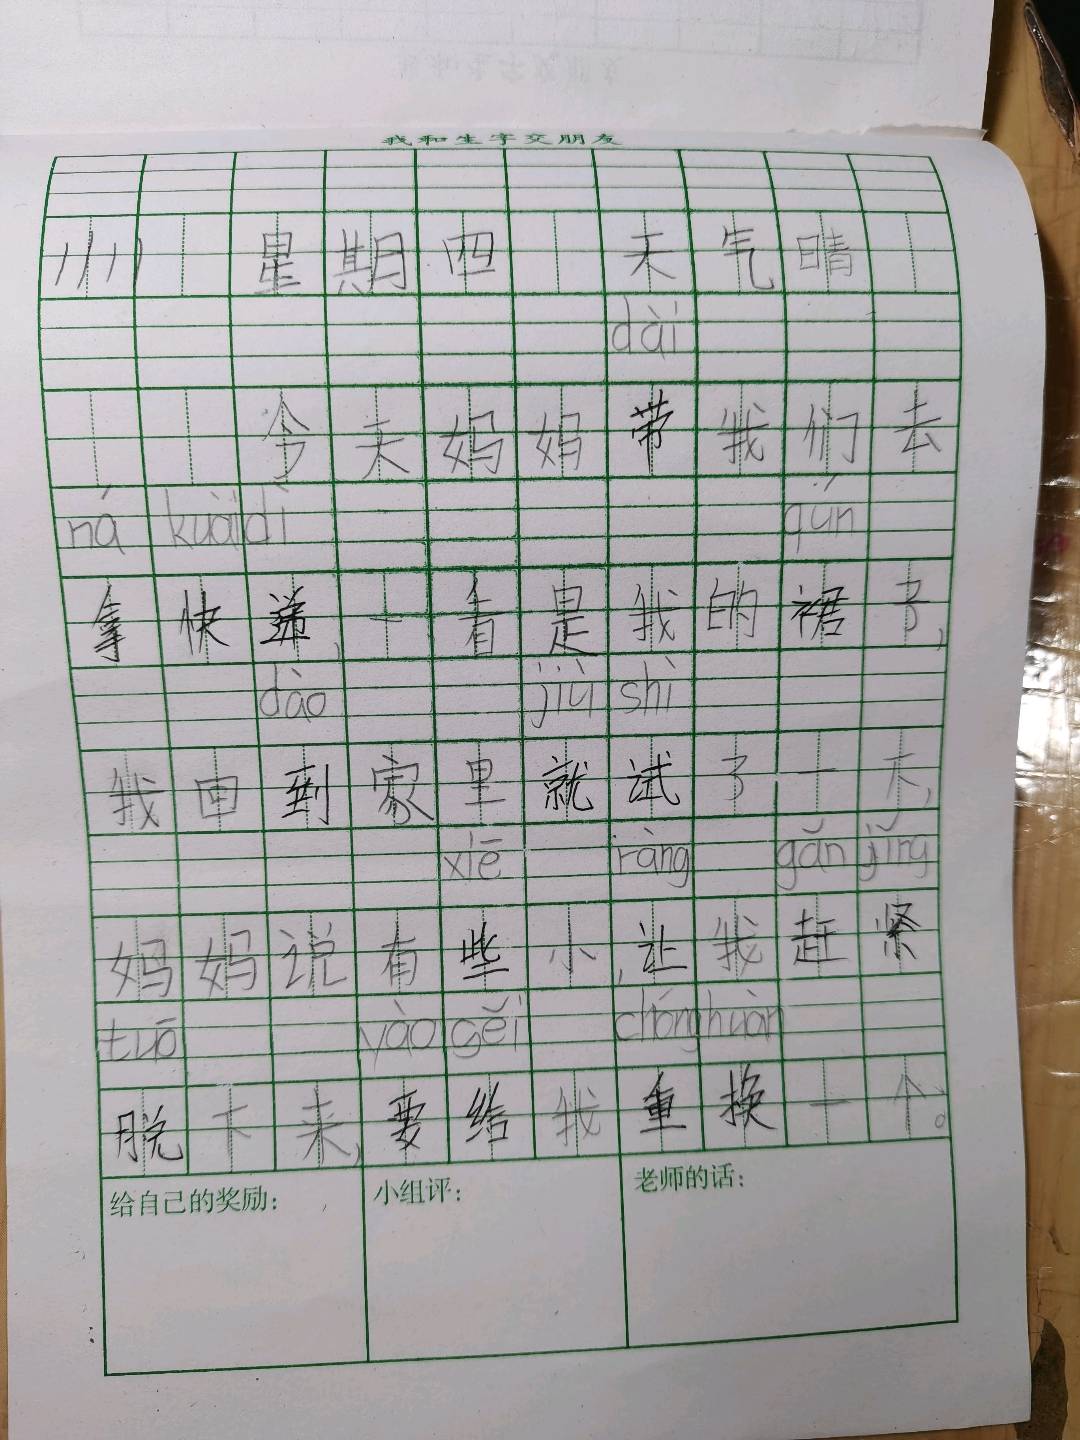 我和生字交朋友
11/11 星期四 天气晴
dài
今天妈妈带我们去
ná kuàidì qún
拿快递,一看是我的裙子,
dào jiù shì
我回到家里就试了一下,
xiē ràng gǎn jǐng
妈妈说有些小,让我赶紧
tuō yào gěi chóng huàn
脱下来,要给我重换一个。
给自己的奖励: 小组评: 老师的话: